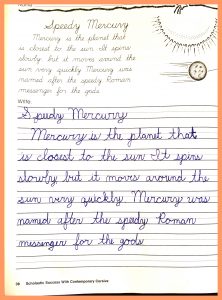 Name
Speedy Mercury
Mercury is the planet that
is closest to the sun. It spins
slowly but it moves around the
sun very quickly. Mercury was
named after the speedy Roman
messenger for the gods.
Write.
Speedy Mercury
Mercury is the planet that
is closest to the sun It spins
slowly but it moves around the
sun very quickly. Mercury was
named after the speedy Roman
messenger for the gods
36 Scholastic Success With Contemporary Cursive